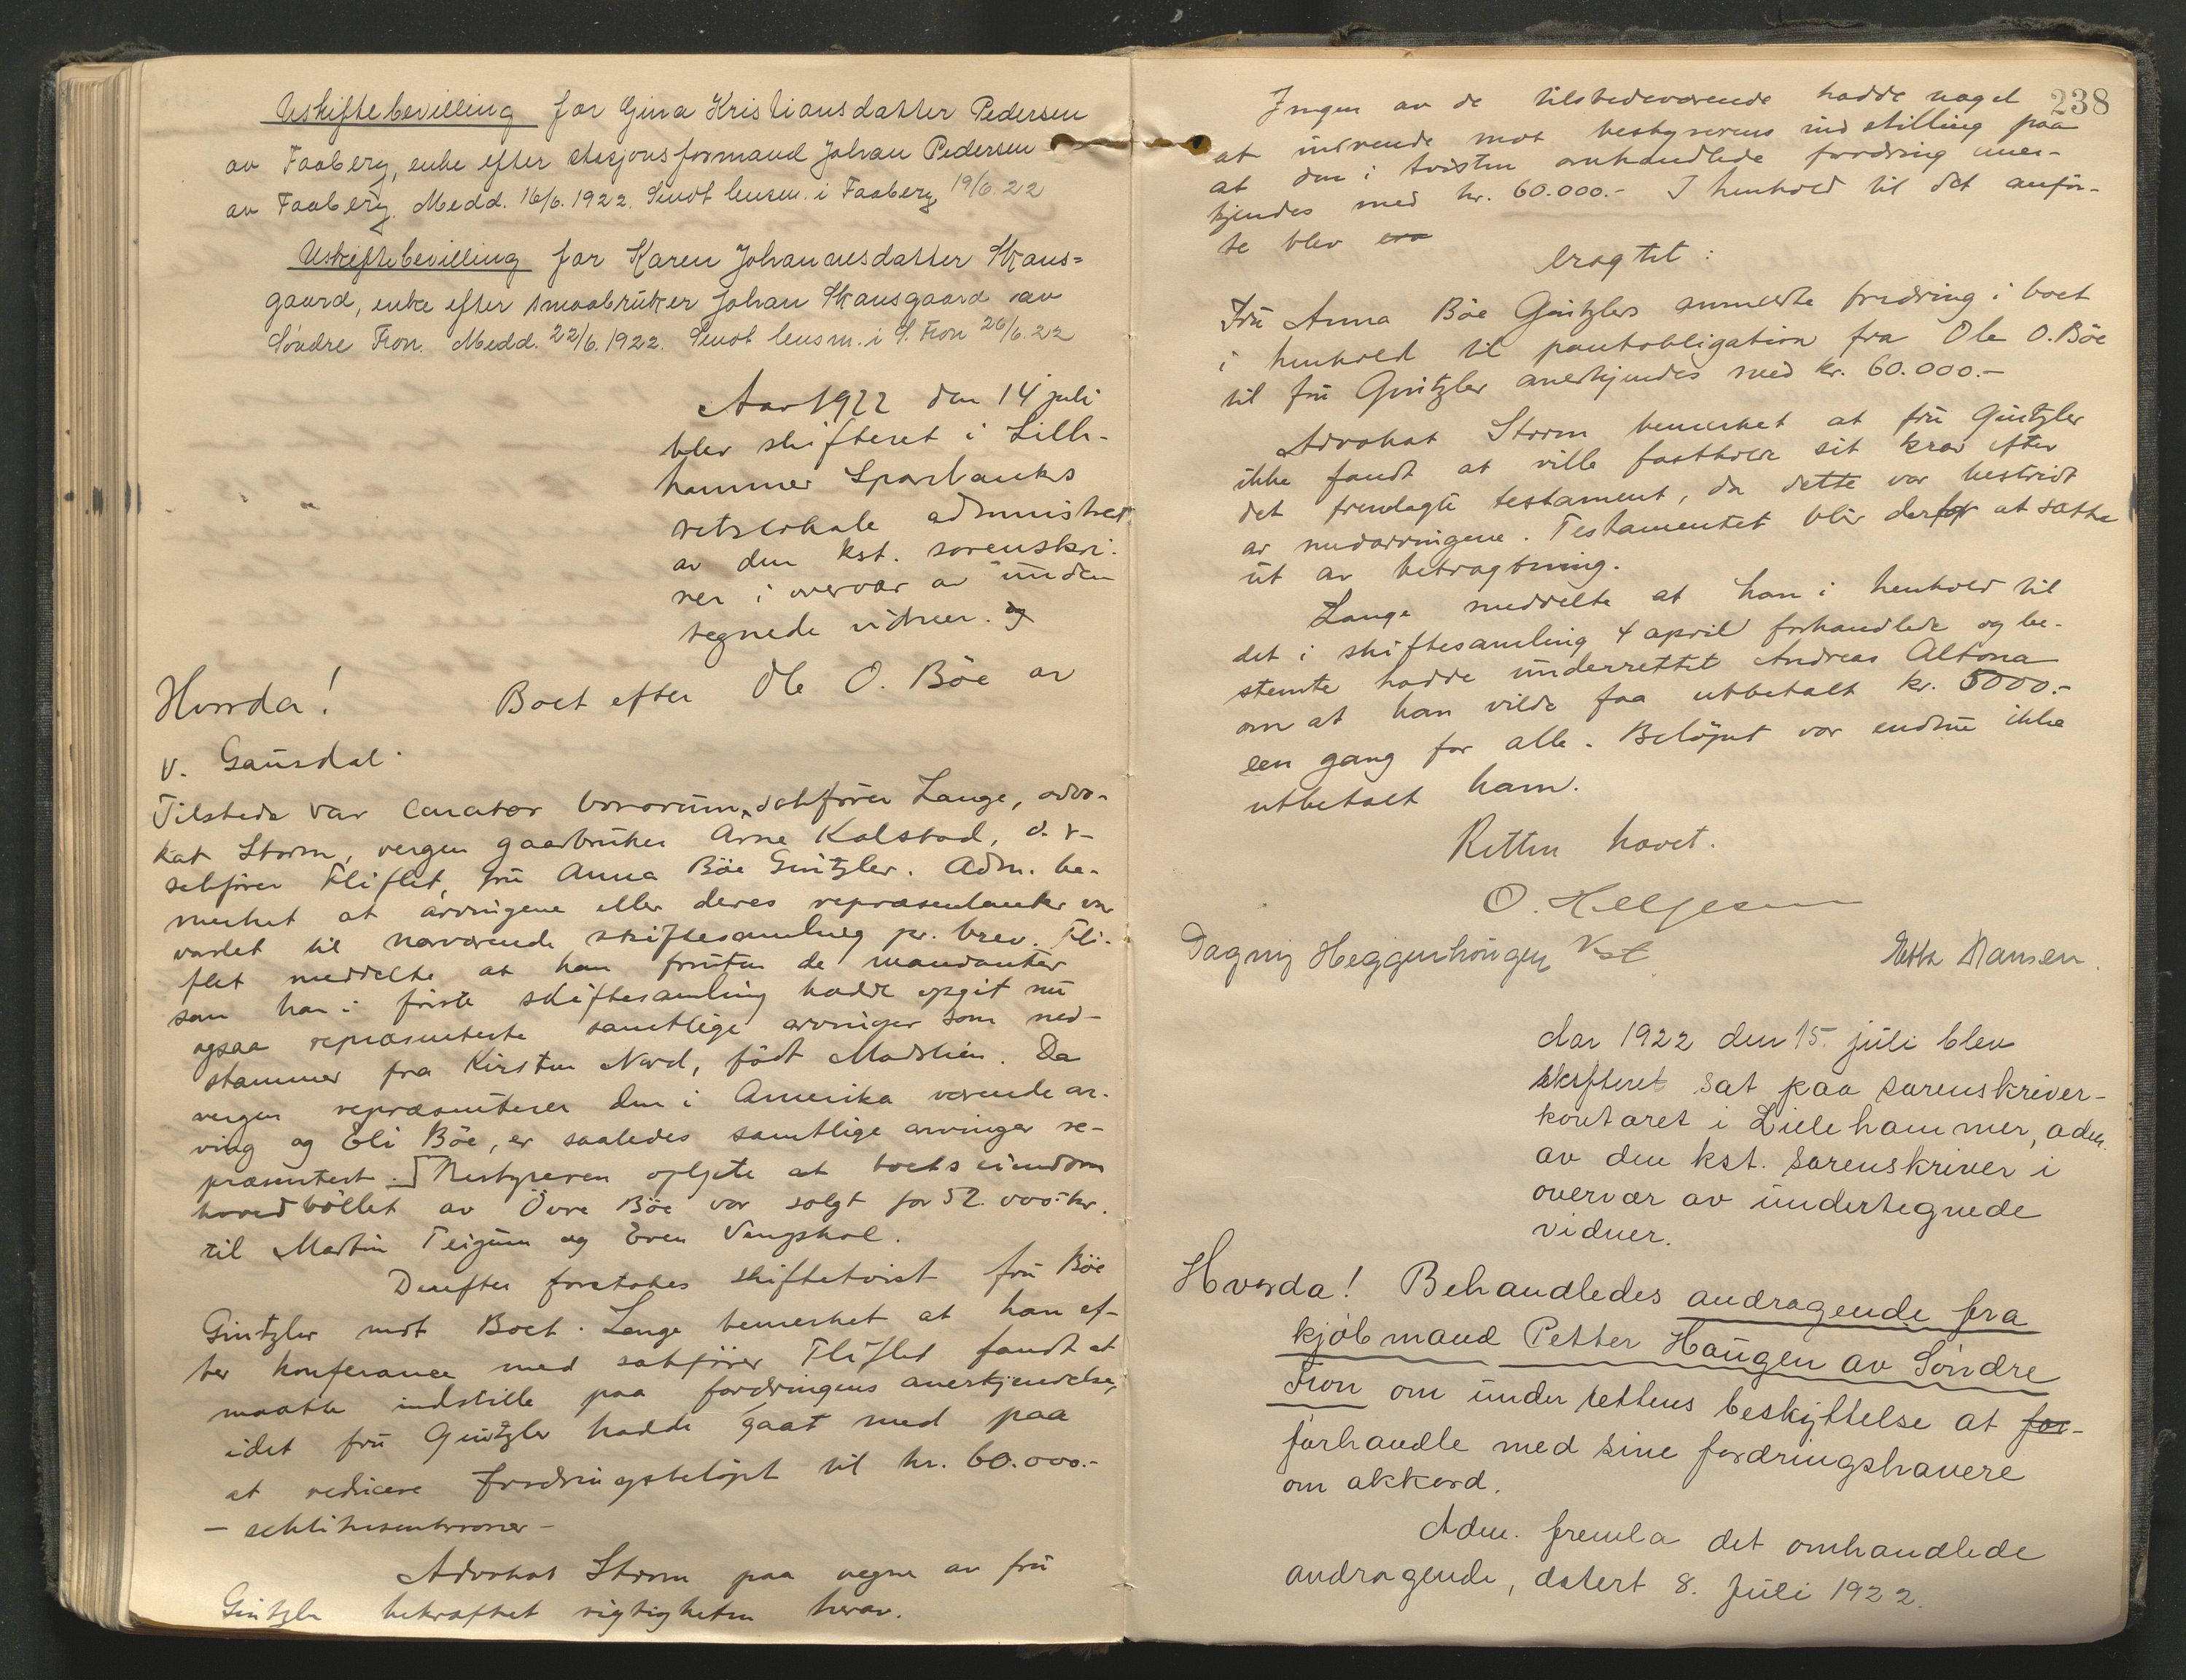 Uskiftebevilling for Gina Kristiansdatter Pedersen
av Faaberg, enke efter stasjonsformand Johan Pedersen
av Faaberg. Medd. 16/6. 1922. Sendt lensm. i Faaberg 19/6. 22
Uskiftebevilling for Karen Johannesdatter Skans-
gaard, enke efter smaabruker Johan Skansgaard av
Söndre Fron. Medd. 22/6. 1922. Sendt lensm. i S. Fron 26/6. 22
Aar 1922 den 14 juli
blev skifteret i Lille-
hammer Sparebanks
retslokale administrert
av den kst. sorenskri-
ver i overvær av under
tegnede vidner. og
Hvorda! Boet efter Ole O. Böe av
v. Gausdal.
Tilstede var curator bonorum, sakfører Lange, advo-
kat Storm, vergen gaardbruker Arne Kalstad, o. r-
sakfører Fliflet, fru Anna Böe Guitzler. Adm. be-
merket at arvingene eller deres repræsentanter var
varslet til nærværende skiftesamling pr. brev. Fli-
flet meddelte at han foruten de mandanter
som han i første skiftesamling hadde opgit nu
ogsaa repræsenterte samtlige arvinger som ned-
stammer fra Kirsten Nord, født Madslien. Da
vergen repræsenterer den i Amerika værende ar-
ving og Eli Böe, er saaledes samtlige arvinger re-
præsentert. Bestyreren oplyste at boets eiendom
hovedbøllet av Övre Böe var solgt for 52.000 kr.
til Martin Teigum og Even
Derefter foretokes skiftetvist fru Böe
Guitzler mot Boet. Lange bemerket at han ef-
ter konferance med sakfører Fliflet fandt at
maatte indstille paa fordringens anerkjendelse,
idet fru Guitzler hadde gaat med paa
at reducere fordringsbeløpet til kr. 60.000.-
- sekstitusenkroner -
Advokat Storm paa vegne av fru
Guitzler bekræftet rigtigheten herav.
238
Ingen av de tilstedeværende hadde noget
at indvende mot bestyrerens indstilling paa
at den i tvisten omhandlede fordring aner-
kjendes med kr. 60.000.- I henhold til det anfør-
te blev era
eragtet:
Fru Anna Böe Guitzlers anmeldte fordring i boet
i henhold til pantobligation fra Ole O. Böe
til fru Guitzler anerkjendes med kr. 60.000.-
Advokat Storm bemerket at fru Guitzler
ikke fandt at ville fastholde sit krav efter
det fremlagte testament, da dette var bestridt
av medarvingene. Testamentet blir derfor at sætte
ut av betragtning.
Lange meddelte at han i henhold til
det i skiftesamling 4 april forhandlede og be-
stemte hadde underrettet Andreas Altona
om at han vilde faa utbetalt kr. 5000.-
een gang for alle. Beløpet var endnu ikke
utbetalt ham.
Retten hævet.
O. Helgesen
Kst.
Dagny Heggenhougen Hansen.
Aar 1922 den 15. juli blev
skifteret sat paa sorenskriver-
kontoret i Lillehammer, adm.
av den kst. sorenskriver i
overvær av undertegnede
vidner.
Hvorda! Behandledes andragende fra
kjøbmand Petter Haugen av Søndre
Fron om under rettens beskyttelse at for-
forhandle med sine fordringshavere
om akkord.
Adm. fremla det omhandlede
andragende, datert 8. juli 1922.